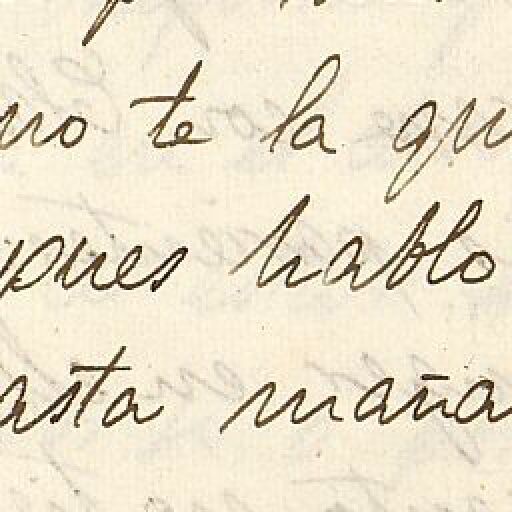 no te la qu
pues hablo
asta maña